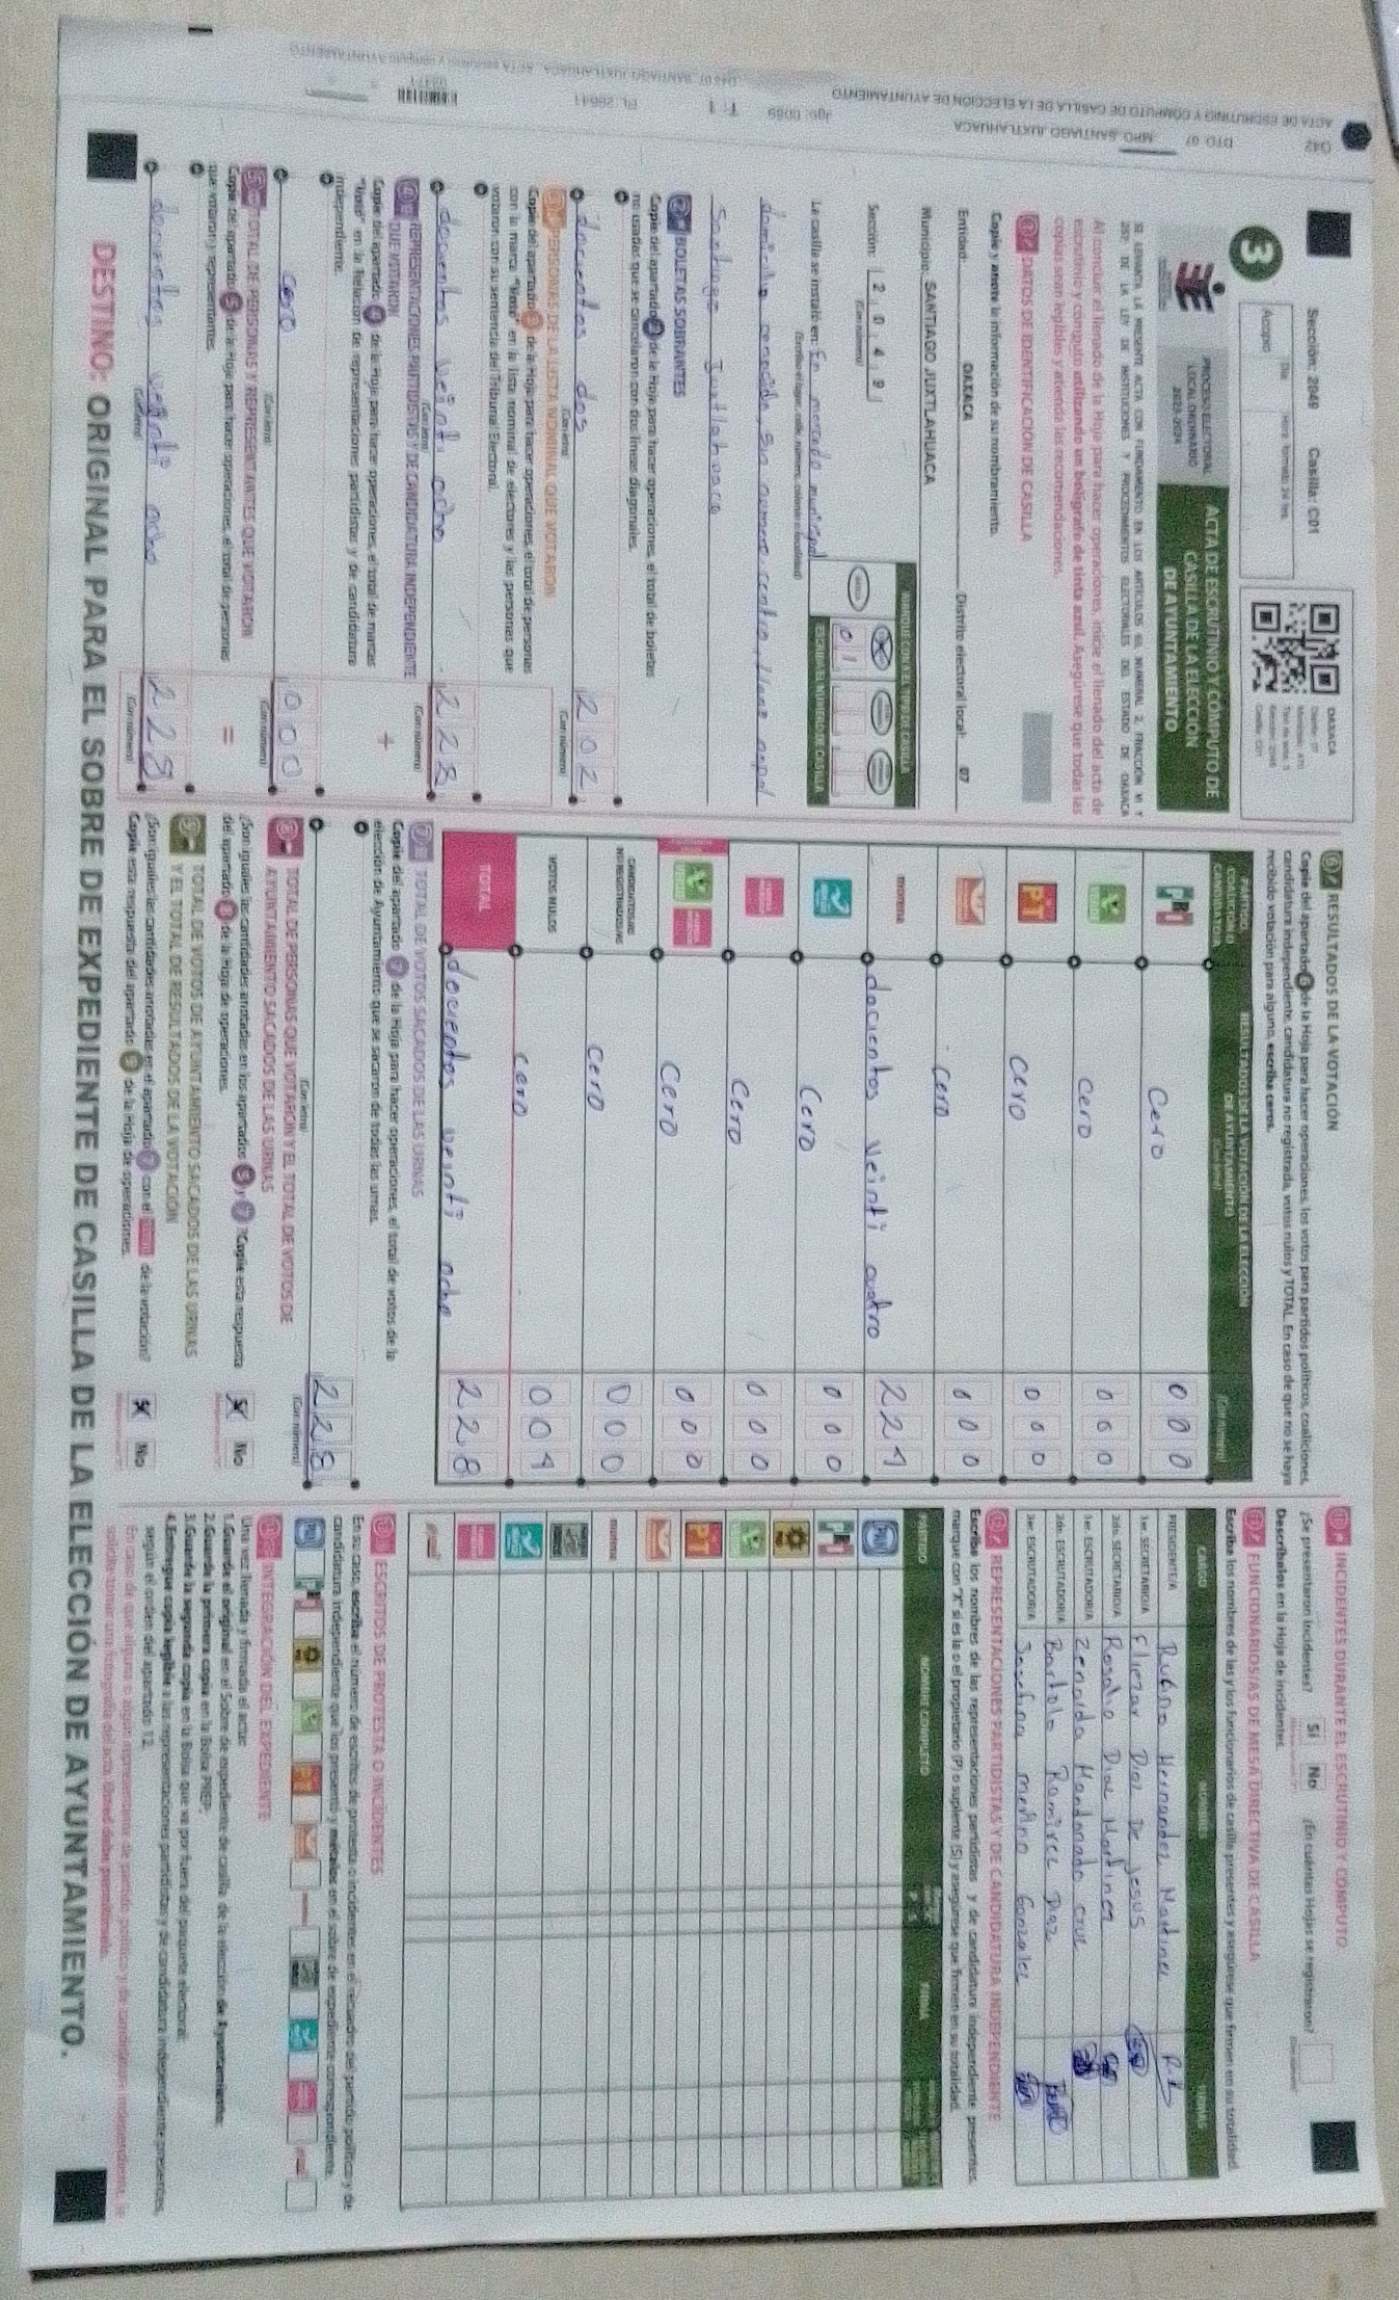 042 DTO. 07 MPO. SANTIAGO JUXTLAHUACA
ACTA DE ESCRUTINIO Y CÓMPUTO DE CASILLA DE LA ELECCIÓN DE AYUNTAMIENTO
Sección: 2049 Casilla: C01
3
Acopio
OAXACA
PROCESO ELECTORAL
LOCAL ORDINARIO
2023-2024
ACTA DE ESCRUTINIO Y CÓMPUTO DE
CASILLA DE LA ELECCIÓN
DE AYUNTAMIENTO
Al concluir el llenado de la Hoja para hacer operaciones, inicie el llenado del acta de
escrutinio y cómputo utilizando un bolígrafo de tinta azul. Asegúrese que todas las
copias sean legibles y atienda las recomendaciones.
1 DATOS DE IDENTIFICACIÓN DE CASILLA
Copie y anote la información de su nombramiento.
Entidad: OAXACA Distrito electoral local: 07
Municipio: SANTIAGO JUXTLAHUACA
Sección: 2 0 4 9
(Con número)
MARQUE CON X EL TIPO DE CASILLA
ESCRIBA EL NÚMERO DE CASILLA
0 1
La casilla se instaló en: En mercado municipal
domicilio conocido, sin numero, centro,
Santiago Juxtlahuaca
2 BOLETAS SOBRANTES
Copie del apartado 2 de la Hoja para hacer operaciones, el total de boletas
no usadas que se cancelaron con dos líneas diagonales.
docientos dos 202
(Con letra) (Con número)
3 PERSONAS DE LA LISTA NOMINAL QUE VOTARON
Copie del apartado 3 de la Hoja para hacer operaciones, el total de personas
con la marca "Votó" en la lista nominal de electores y las personas que
votaron con su sentencia del Tribunal Electoral.
docuentos veinti ocho 228
(Con letra) (Con número)
4 REPRESENTACIONES PARTIDISTAS Y DE CANDIDATURA INDEPENDIENTE
QUE VOTARON
+
Copie del apartado 4 de la Hoja para hacer operaciones, el total de marcas
"Votó" en la Relación de representaciones partidistas y de candidatura
independiente.
cero 000
(Con letra) (Con número)
5 TOTAL DE PERSONAS Y REPRESENTANTES QUE VOTARON
=
Copie del apartado 5 de la Hoja para hacer operaciones, el total de personas
que votaron y representantes.
docientos veinti ocho 228
(Con letra) (Con número)
6 RESULTADOS DE LA VOTACIÓN
Copie del apartado 6 de la Hoja para hacer operaciones, los votos para partidos políticos, coaliciones,
candidatura independiente, candidatura no registrada, votos nulos y TOTAL. En caso de que no se haya
recibido votación para alguno, escriba ceros.
PARTIDO,
COALICIÓN O
CANDIDATO/A
RESULTADOS DE LA VOTACIÓN DE LA ELECCIÓN
DE AYUNTAMIENTO
PRI Cero 000
cero 000
PT cero 000
cero 000
docientos veinti cuatro 224
Cero 000
cero 000
cero 000
cero 000
VOTOS NULOS cero 004
TOTAL docientos veinti ocho 228
7 TOTAL DE VOTOS SACADOS DE LAS URNAS
Copie del apartado 7 de la Hoja para hacer operaciones, el total de votos de la
elección de Ayuntamiento que se sacaron de todas las urnas.
228
(Con letra) (Con número)
8 TOTAL DE PERSONAS QUE VOTARON Y EL TOTAL DE VOTOS DE
AYUNTAMIENTO SACADOS DE LAS URNAS
¿Son iguales las cantidades anotadas en los apartados 5 y 7? Copie esta respuesta
del apartado 8 de la Hoja de operaciones.
Sí No
9 TOTAL DE VOTOS DE AYUNTAMIENTO SACADOS DE LAS URNAS
Y EL TOTAL DE RESULTADOS DE LA VOTACIÓN
¿Son iguales las cantidades anotadas en el apartado 7 con el TOTAL de la votación?
Copie esta respuesta del apartado 9 de la Hoja de operaciones.
Sí No
10 INCIDENTES DURANTE EL ESCRUTINIO Y CÓMPUTO
¿Se presentaron incidentes? Sí No ¿En cuántas Hojas se registraron?
Descríbalos en la Hoja de incidentes.
11 FUNCIONARIOS/AS DE MESA DIRECTIVA DE CASILLA
Escriba los nombres de las y los funcionarios de casilla presentes y asegúrese que firmen en su totalidad.
CARGO NOMBRES FIRMAS
PRESIDENTE/A Rubno Hernandez Martinez
1er. SECRETARIO/A Eliezar Diaz De Jesus
2do. SECRETARIO/A Rosalio Diaz Martinez
1er. ESCRUTADOR/A Zenaida Mandonado cruz
2do. ESCRUTADOR/A Bartolo Ramirez Diaz
3er. ESCRUTADOR/A Josefina merino Gonzalez
12 REPRESENTACIONES PARTIDISTAS Y DE CANDIDATURA INDEPENDIENTE
Escriba los nombres de las representaciones partidistas y de candidatura independiente presentes,
marque con "X" si es la o el propietario (P) o suplente (S) y asegúrese que firmen en su totalidad.
PARTIDO NOMBRE COMPLETO FIRMA
PAN
PRI
PT
13 ESCRITOS DE PROTESTA O INCIDENTES
En su caso, escriba el número de escritos de protesta o incidentes en el recuadro del partido político y de
candidatura independiente que los presentó y métalos en el sobre de expediente correspondiente.
14 INTEGRACIÓN DEL EXPEDIENTE
Una vez llenada y firmada el acta:
1. Guarde el original en el Sobre de expediente de casilla de la elección de Ayuntamiento.
2. Guarde la primera copia en la Bolsa PREP.
3. Guarde la segunda copia en la Bolsa que va por fuera del paquete electoral.
4. Entregue copia legible a las representaciones partidistas y de candidatura independiente presentes,
según el orden del apartado 12.
DESTINO: ORIGINAL PARA EL SOBRE DE EXPEDIENTE DE CASILLA DE LA ELECCIÓN DE AYUNTAMIENTO.